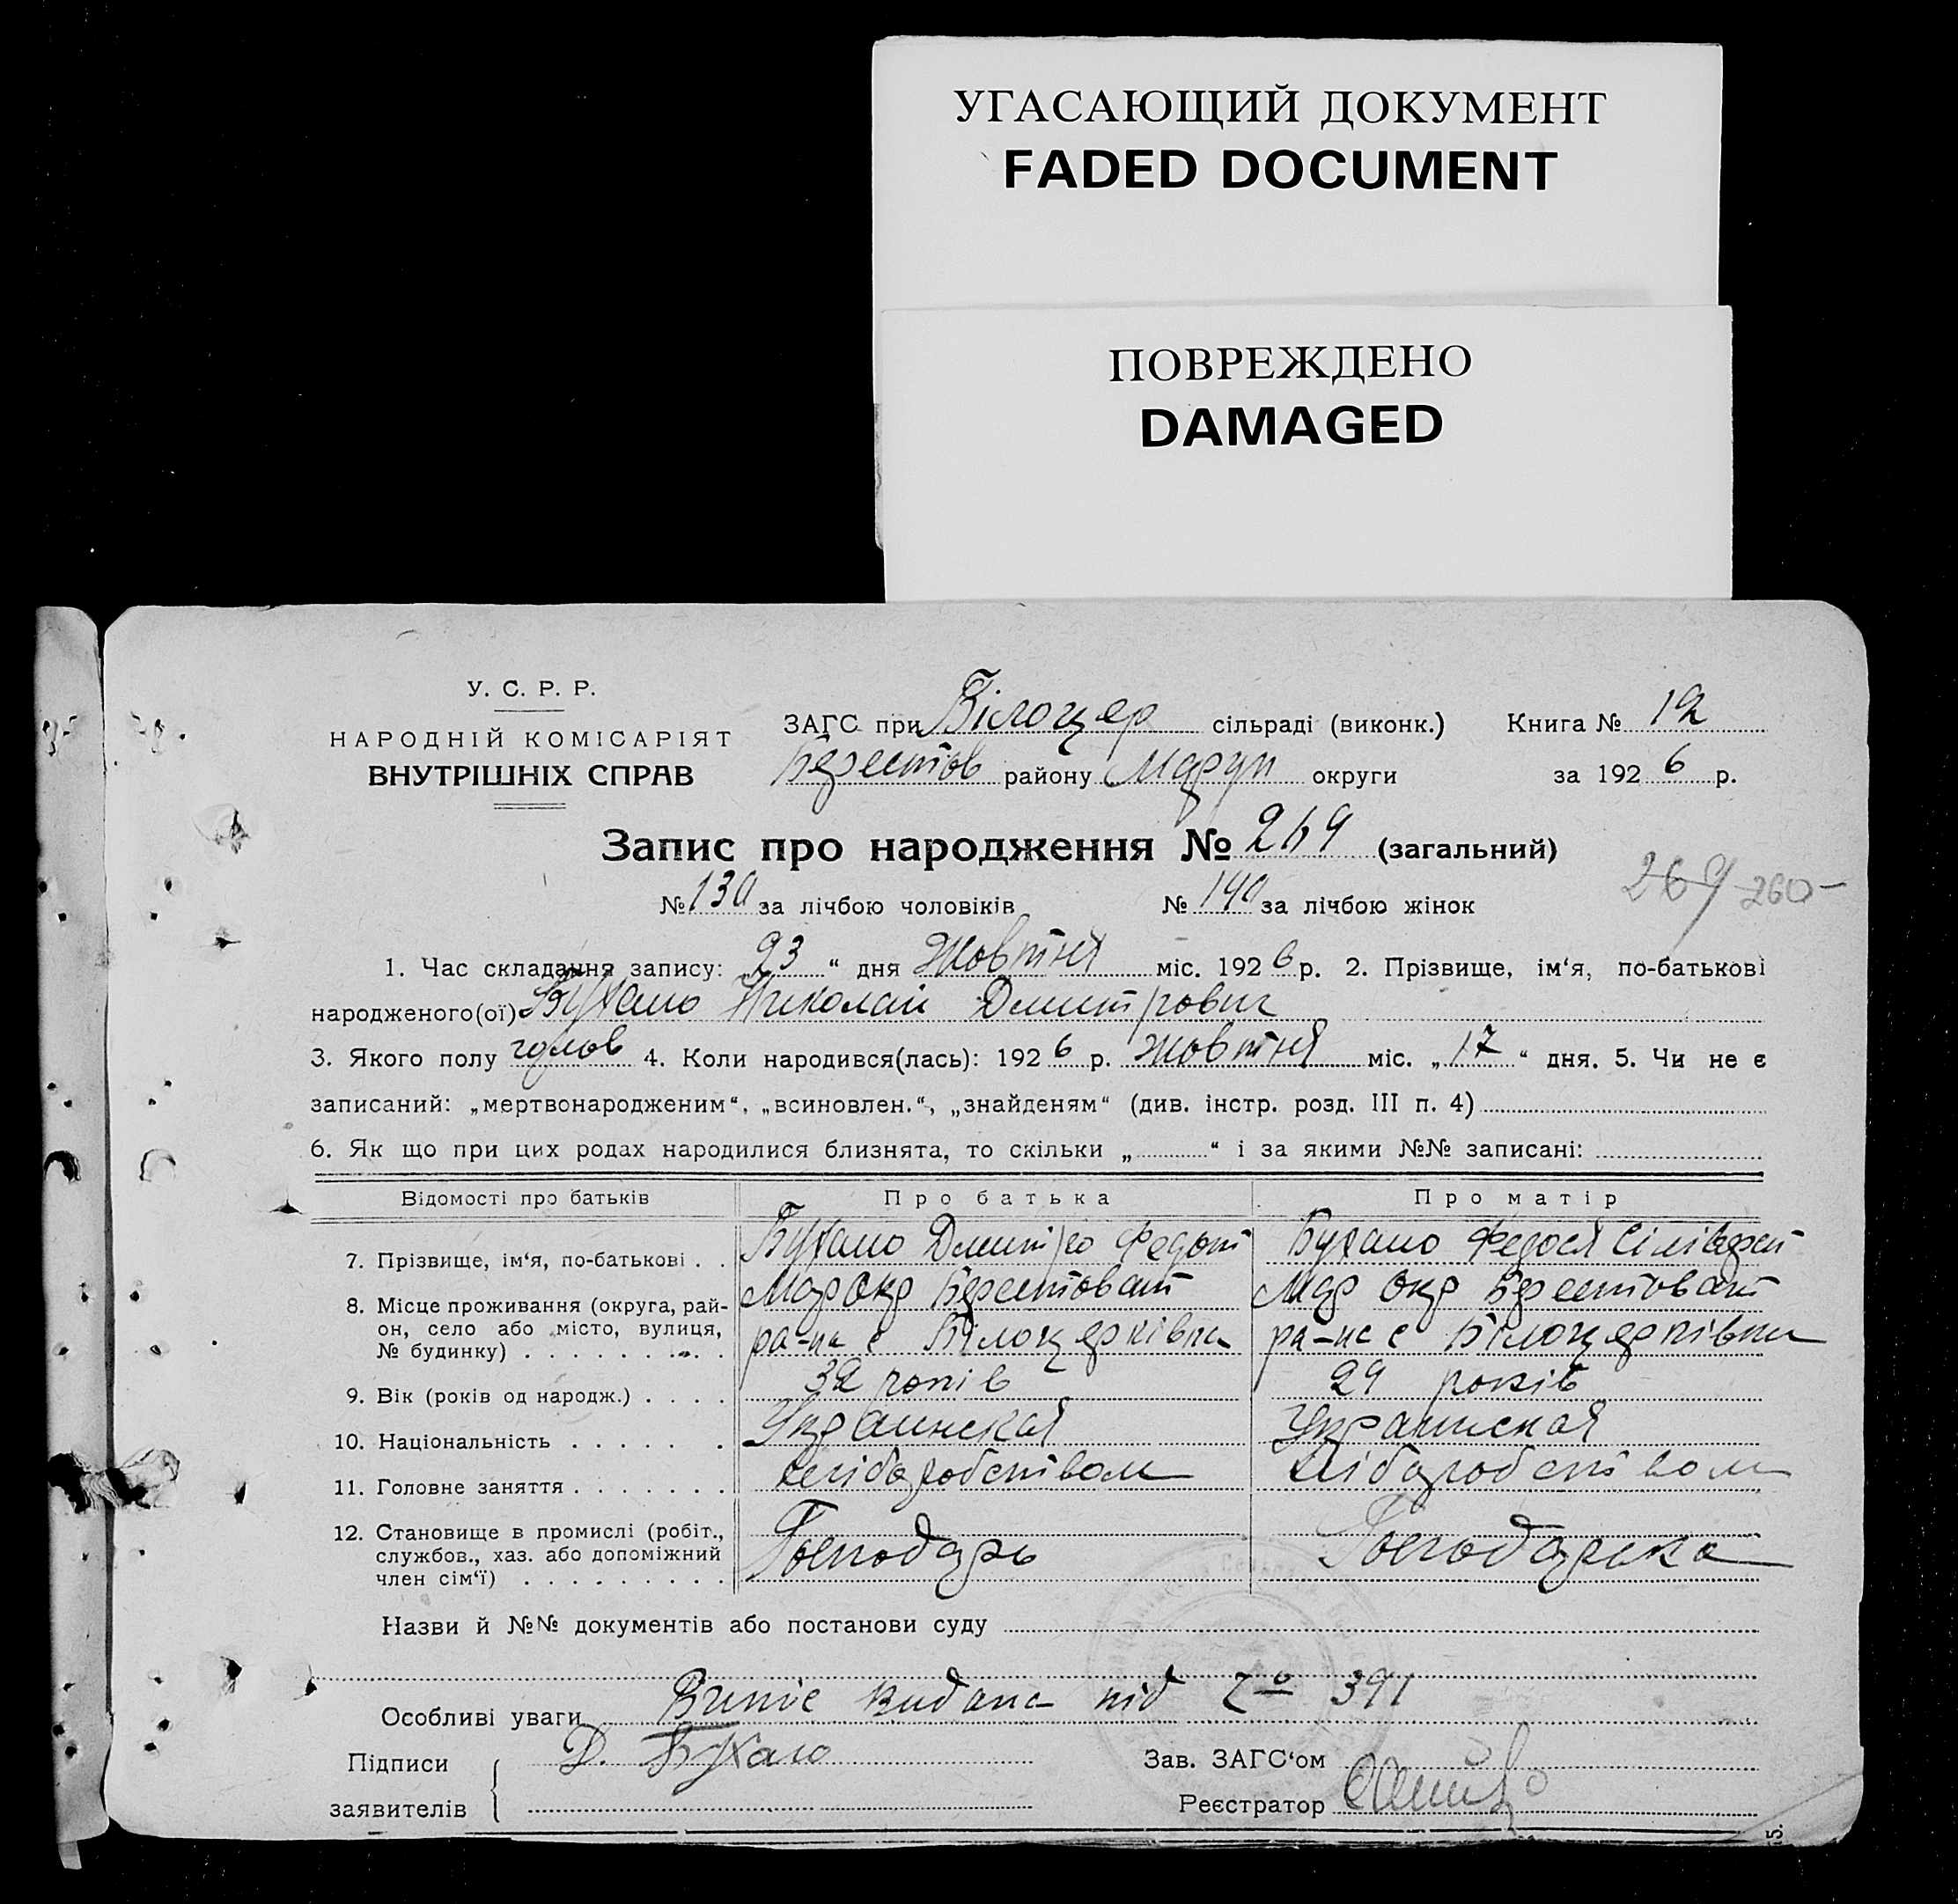 УГАСАЮЩИЙ ДОКУМЕНТ
FADED DOCUMENT
ПОВРЕЖДЕНО
DAMAGED
У. С. Р. Р.
НАРОДНІЙ КОМІСАРІЯТ
ВНУТРІШНІХ СПРАВ
ЗАГС при Білоцер сільраді (виконк.) Книга № 12
Берестов району Маруп округи за 192 6 р.
Запис про народження № 269 (загальний)
269 260
№ за лічбою чоловіків № 140 за лічбою жінок
1. Час складання запису: 23 “ дня Жовтня міс. 192 6 р. 2. Прізвище, ім‘я, по-батькові
народженого(ої) Бухало Николай Дмитрович
3. Якого полу чолов 4. Коли народився(лась): 192 6 р. жовтня міс. „ 17 “ дня. 5. Чи не є
записаний: „мертвонародженим“, „всиновлен.“, „знайденям“ (див. інстр. розд. III п. 4)
6. Як що при цих родах народилися близнята, то скільки „ “ і за якими №№ записані:
Відомості про батьків Про батька Про матір
7. Прізвище, ім‘я, по-батькові Бухало Дмитро Федот Бухало Федося Сіліверст
8. Місце проживання (округа, рай- Мар Окр Берестоват Мар Окр Берестоват
он, село або місто, вулиця, ра-на с Білоцерківка ра-на с Білоцерківка
№ будинку)
9. Вік (років од народж.) 32 років 29 років
10. Національність Украинская Украинская
11. Головне заняття хлібаробством хлібаробством
12. Становище в промислі (робіт.,
службов., хаз. або допоміжний Господарь Господарка
член сім‘ї)
Назви й №№ документів або постанови суду
Особливі уваги Випис видана під 391
Підписи Д. Бухало Зав. ЗАГС‘ом
заявителів Реєстратор